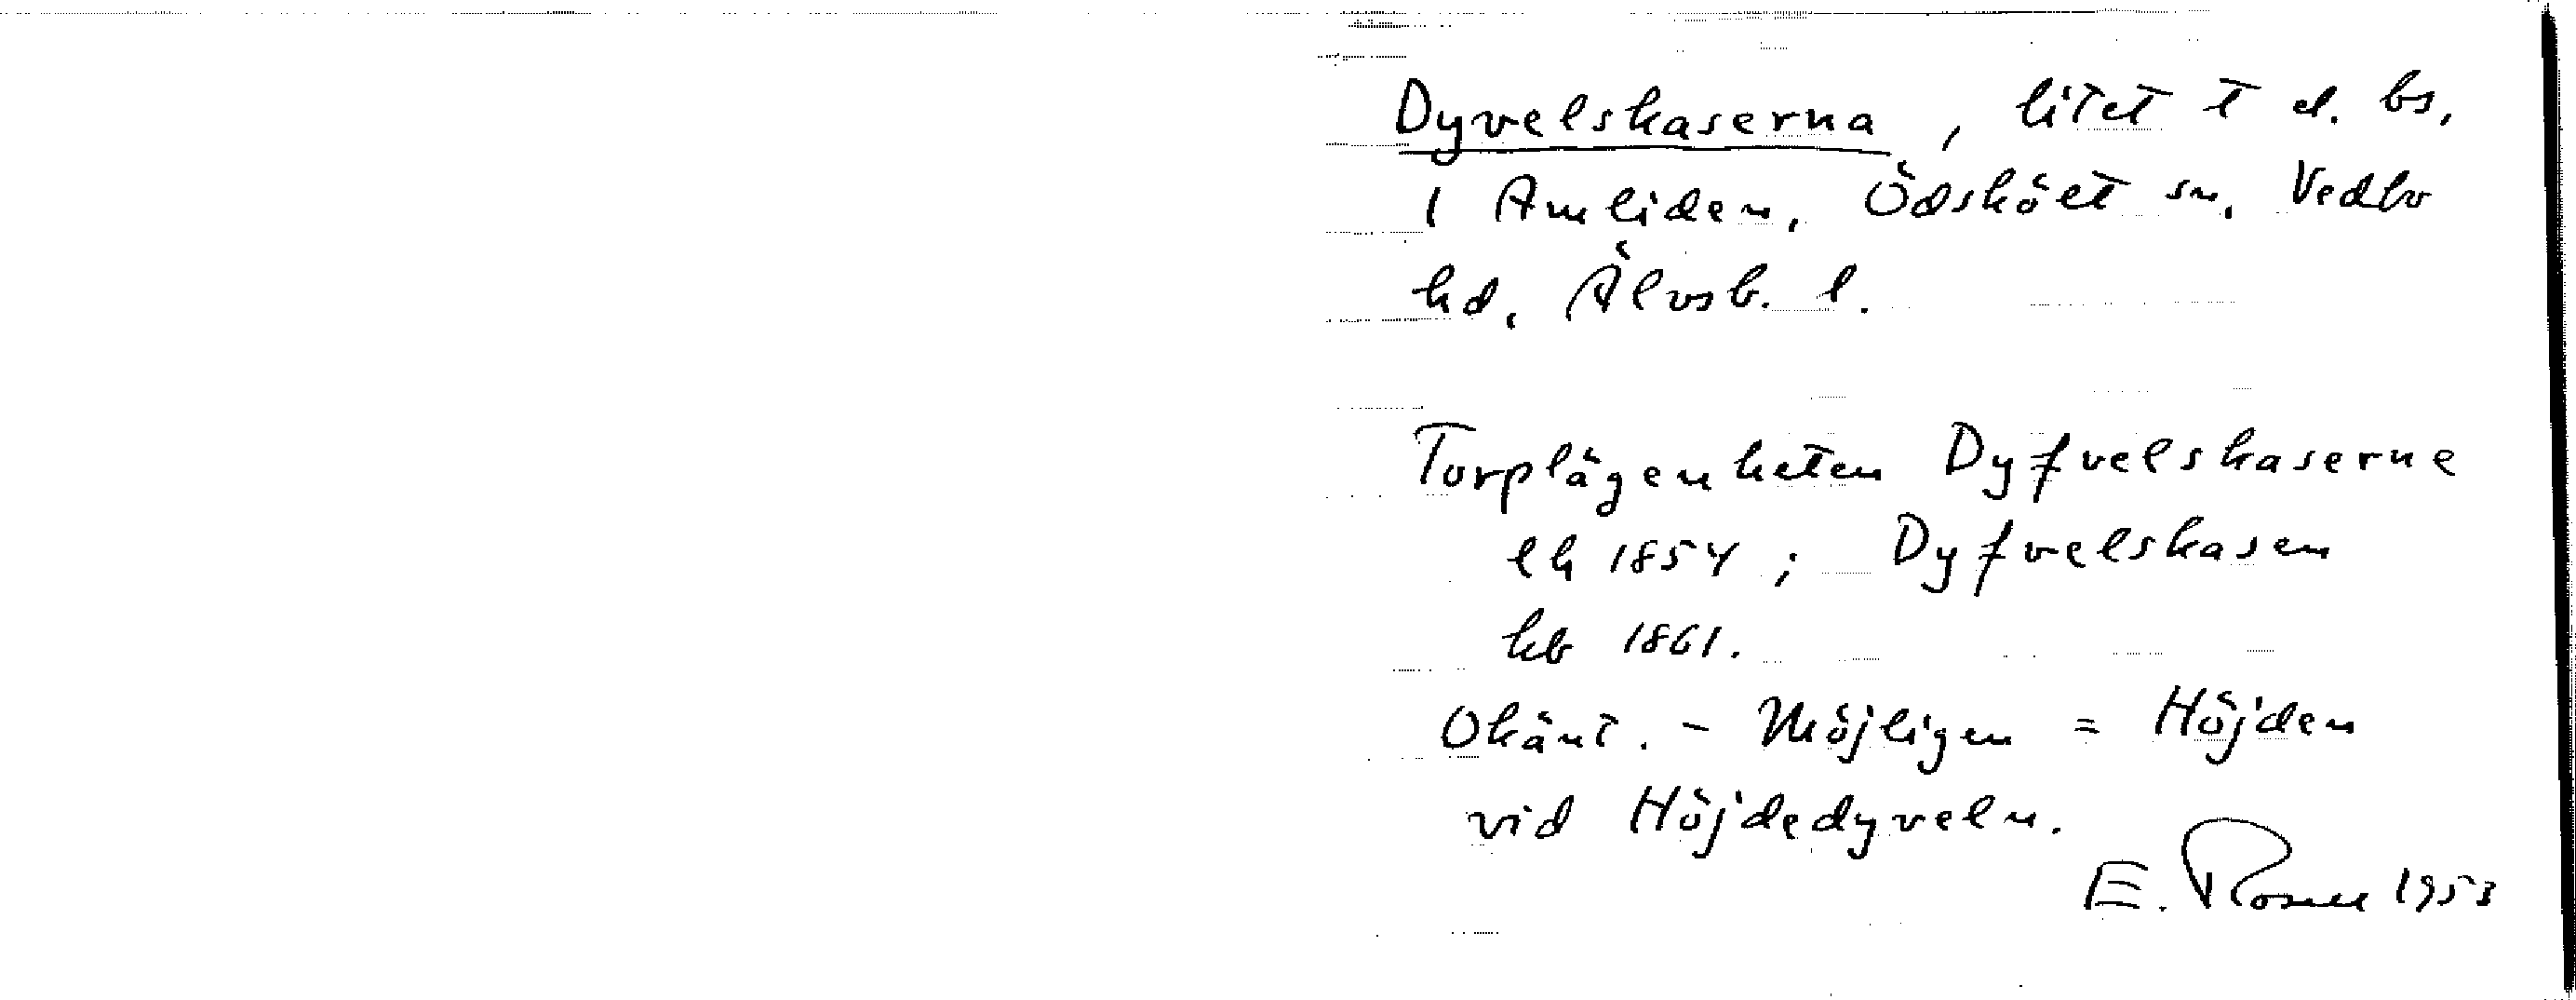 Dyvelskaserna, litet t el. bs,
1 Amliden, Ödsköłt sn, Vedbo
hd, Älvsb. l.
Torplägenheten Dyfvelskaserne
lh 1854; Dyfvelskasen
kb 1861.
Okänt. - Möjligen = Höjden
vid Höjdedyveln.
E. Rosell 1953